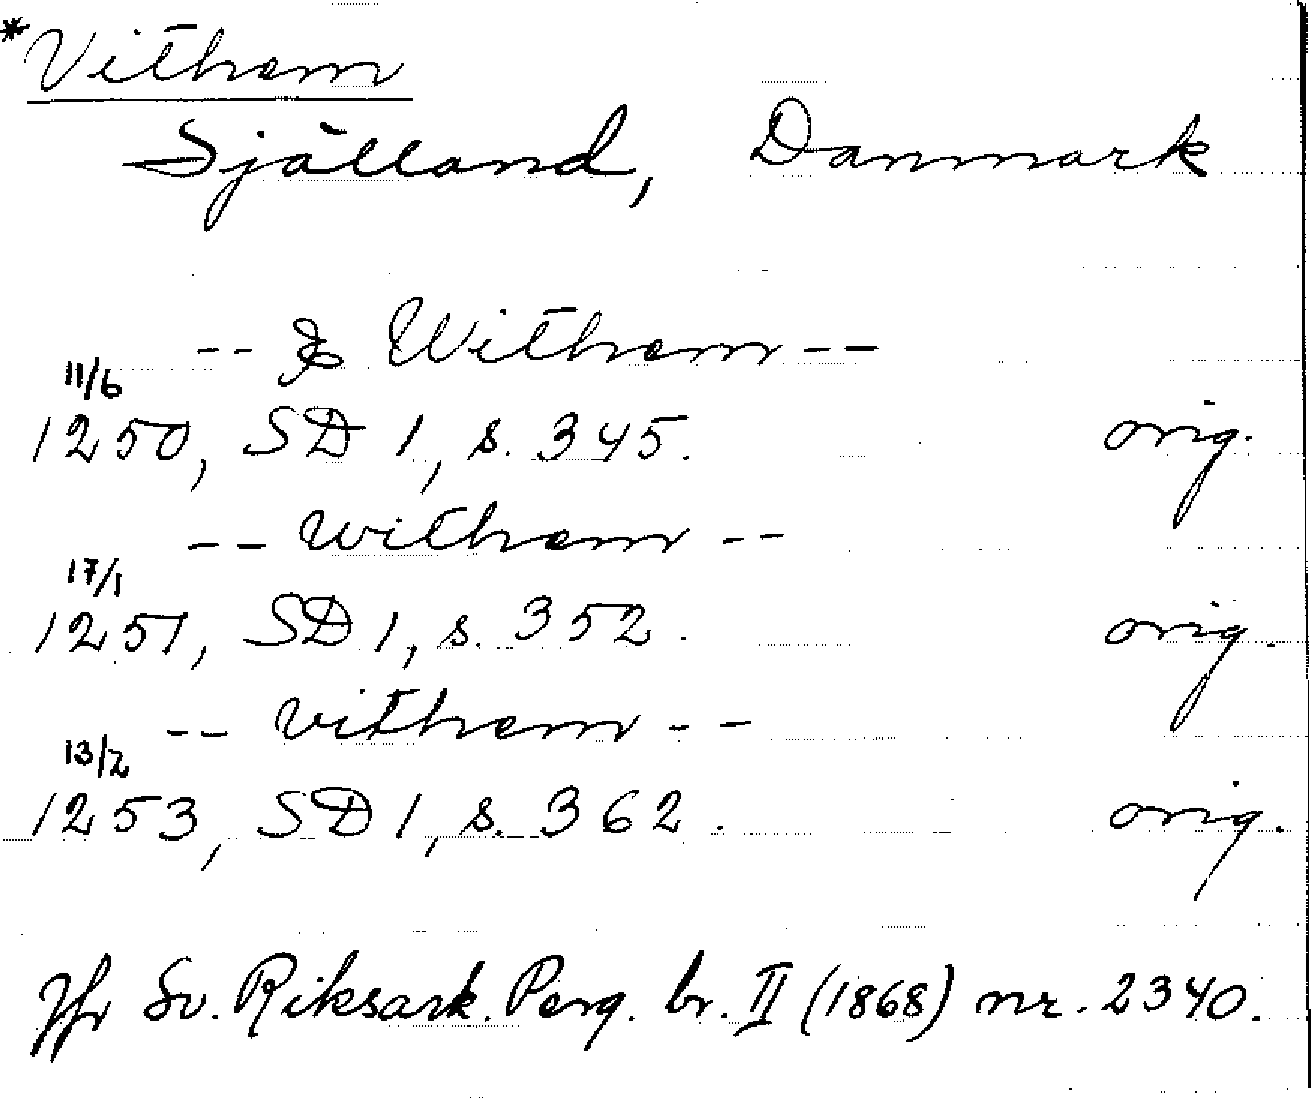 *Vithem
Själland, Danmark
-- & Withem --
11/6
1250, SD 1, s. 345. orig.
-- withem --
17/1
1251, SD 1, s. 352. orig.
-- vithem --
13/2
1253, SD 1, s. 362. orig.
Jfr Sv. Riksark. Perg. br. II (1868) nr. 2340.